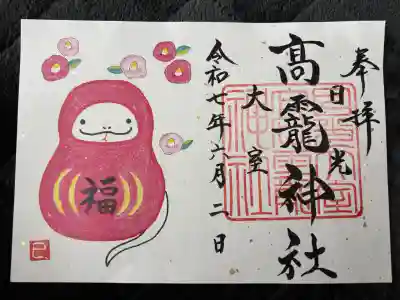 奉拝
日光
大室
高靇神社
令和七年六月二日
福
巳